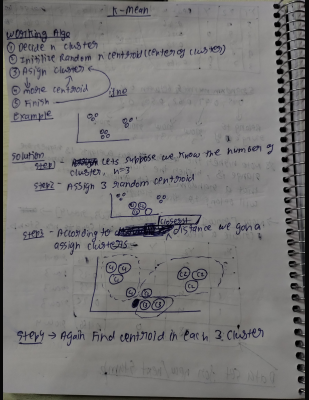 K-Mean
Working Algo
① Decide n cluster
② Initilize Random n centroid (center of cluster)
③ Asign cluster
④ Move centroid
⑤ Finish
Example
Solution
Step1 - lets suppose we know the number of
cluster, n=3
Step2 - Assign 3 random centroid
closerst
Step3 - According to distance we gona
assign clusters -
C1 C1
C1
C2 C2
C2
C3 C3
Step4 → Again Find centroid in each 3 cluster